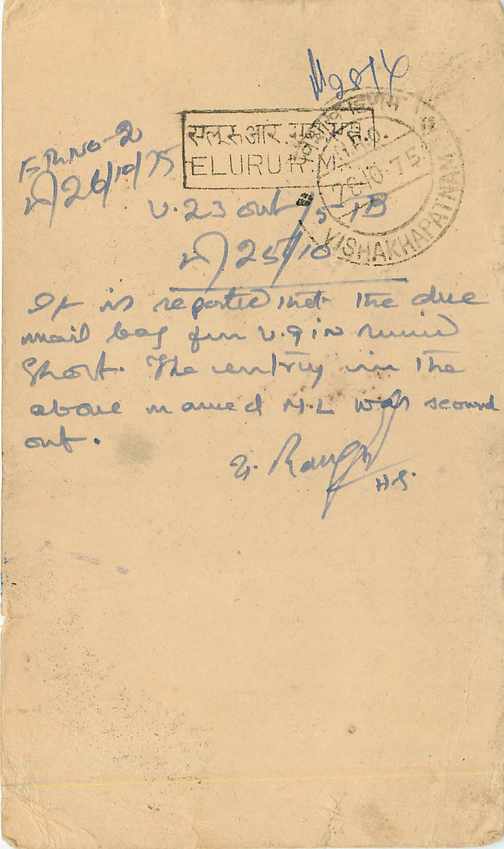 M2874
एलूरू आर
ELURU R.M.
H.O.
26.10.75
VISHAKHAPATNAM
E.R.No-2
26/10/75
U.23 out /5-1B
25/10
It is reported that the due
mail bag from U.9 in received
short. The entry in the
above named M.L was scored
out.
H.S.